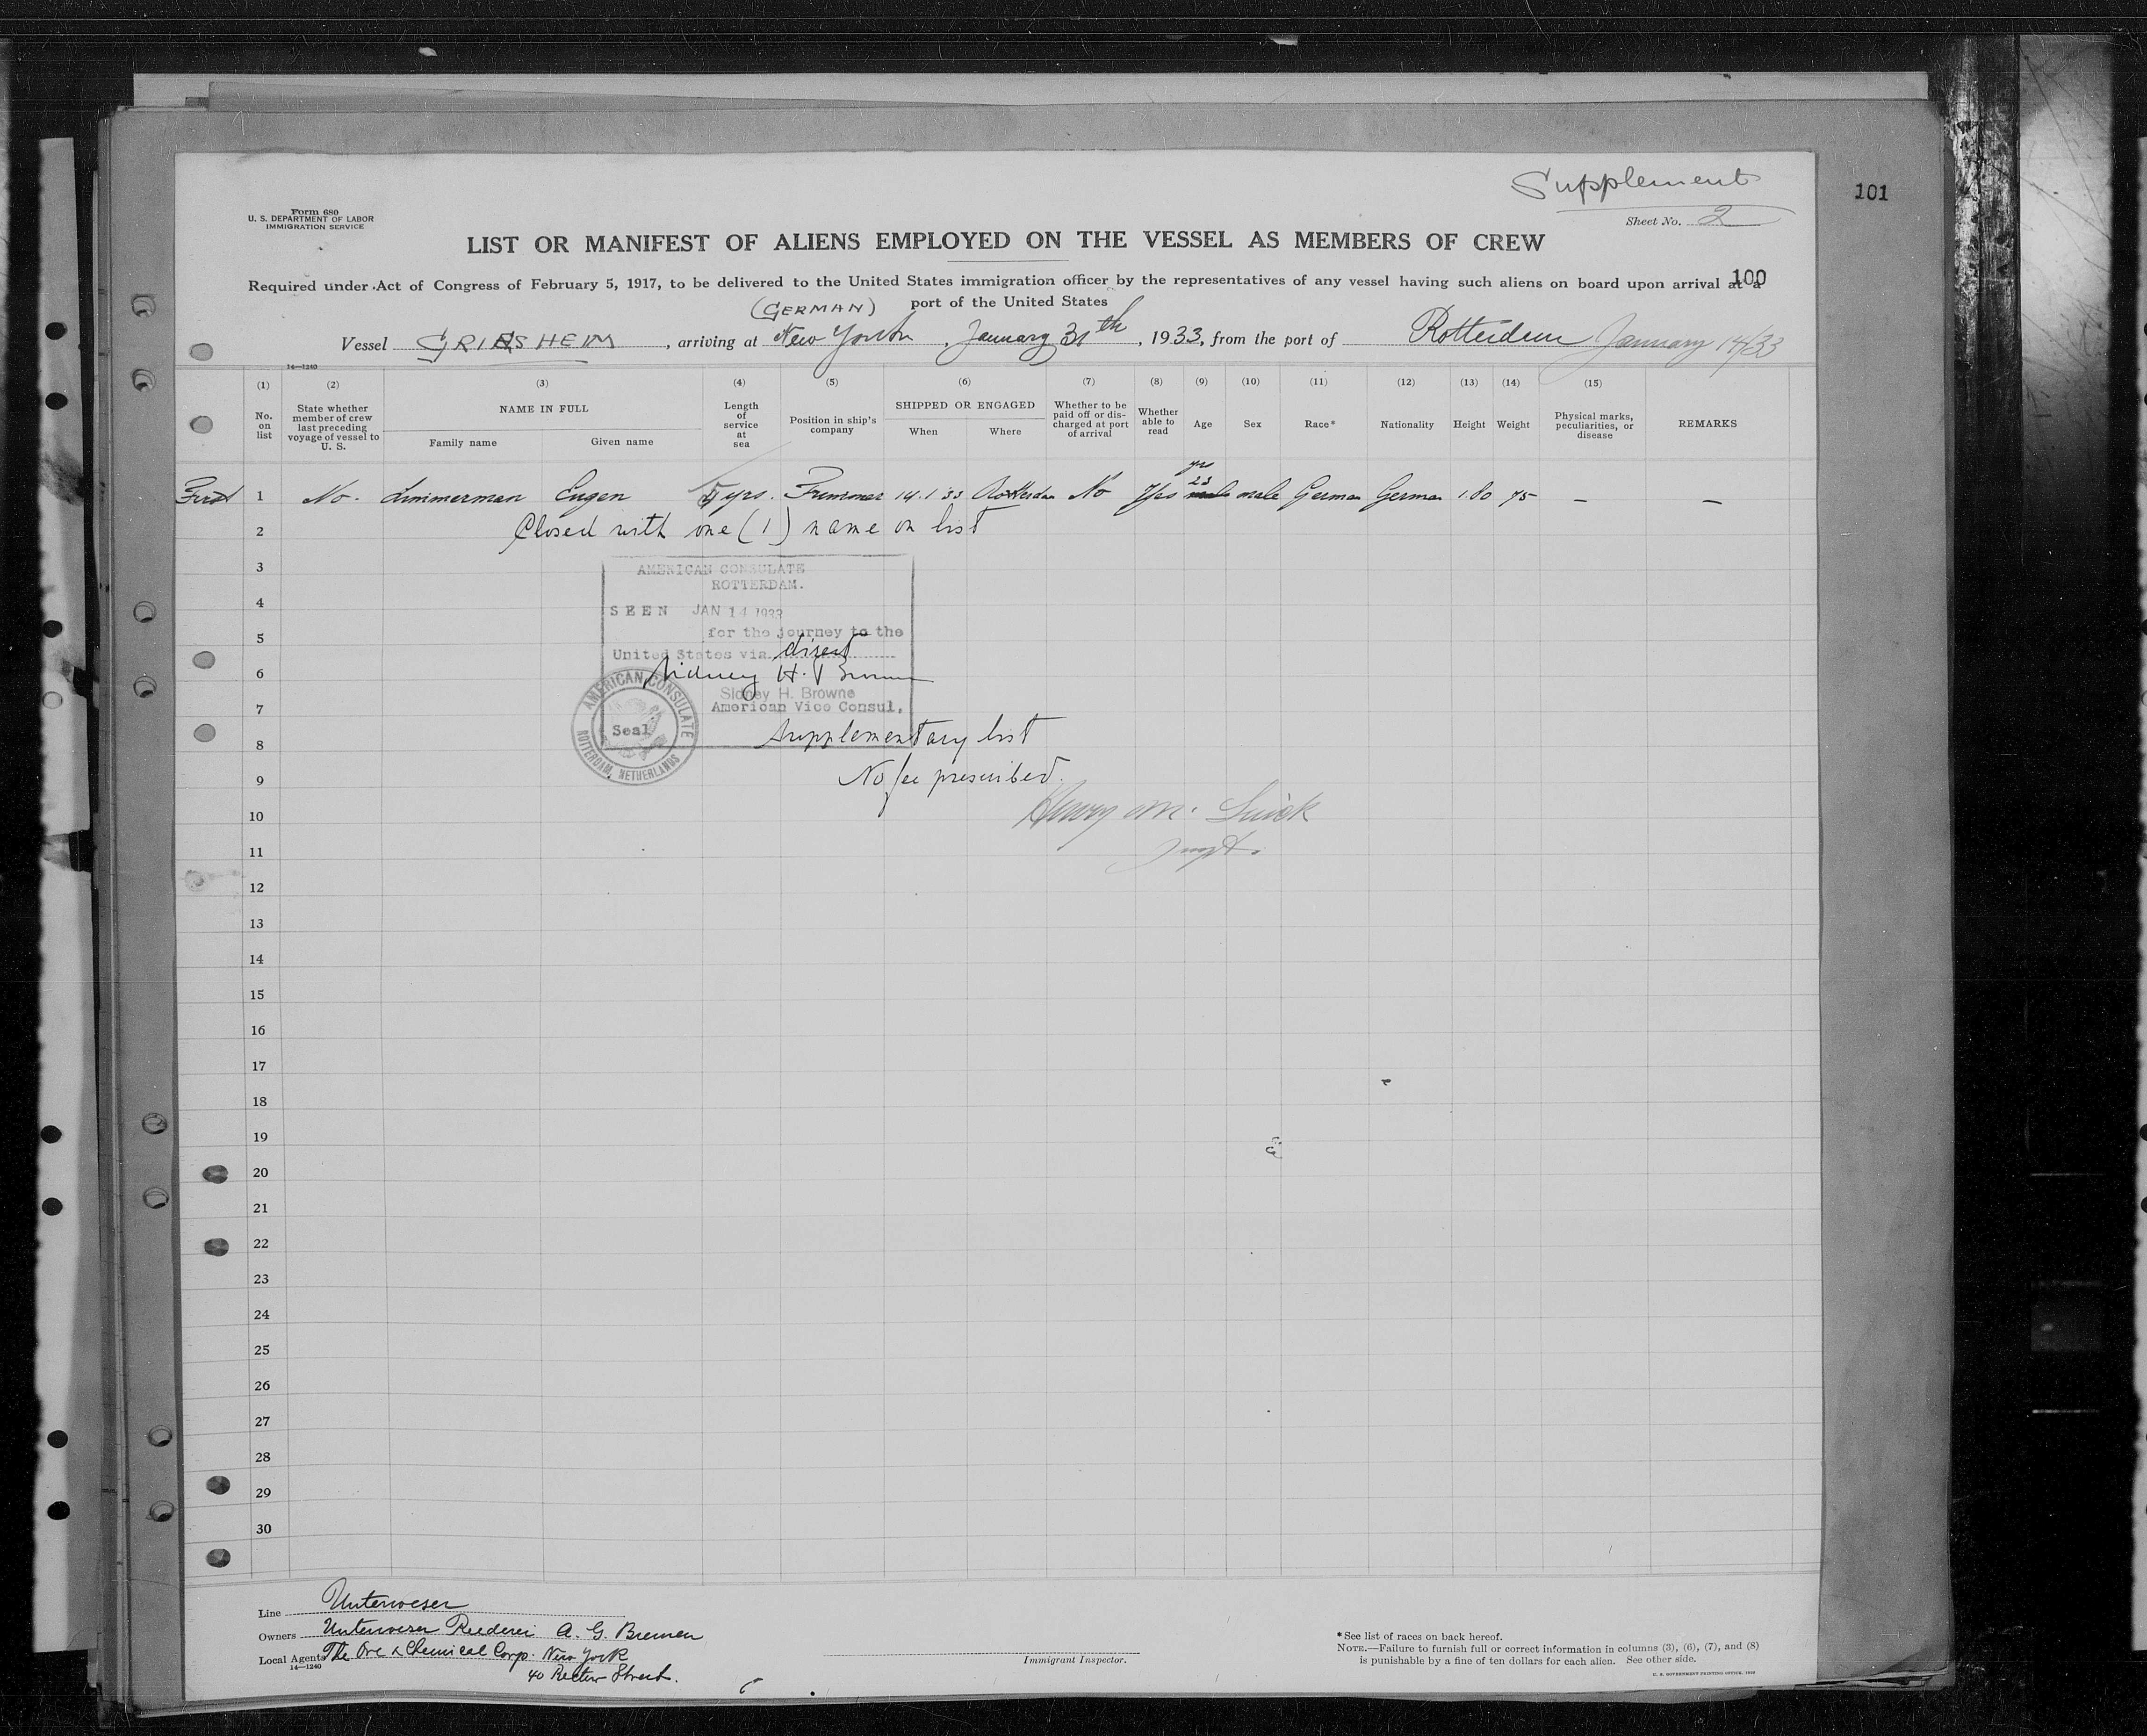 Supplement
101
Form 680
U. S. DEPARTMENT OF LABOR
IMMIGRATION SERVICE
Sheet No. 2
LIST OR MANIFEST OF ALIENS EMPLOYED ON THE VESSEL AS MEMBERS OF CREW
Required under Act of Congress of February 5, 1917, to be delivered to the United States immigration officer by the representatives of any vessel having such aliens on board upon arrival at a
100
port of the United States
(GERMAN)
Vessel GRIESHEIM, arriving at New York, January 31th, 1933, from the port of Rotterdam January 14/33
14—1240
(1) (2) (3) (4) (5) (6) (7) (8) (9) (10) (11) (12) (13) (14) (15)
No. on list
State whether member of crew last preceding voyage of vessel to U. S.
NAME IN FULL
Family name Given name
Length of service at sea
Position in ship's company
SHIPPED OR ENGAGED
When Where
Whether to be paid off or discharged at port of arrival
Whether able to read
Age
Sex
Race*
Nationality
Height
Weight
Physical marks, peculiarities, or disease
REMARKS
yrs
First 1 No. Zimmerman Eugen 5 yrs. Trimmer 14.1.33 Rotterdam No Yes 23 male German German 1.80 75 — —
2 Closed with one (1) name on list
3 AMERICAN CONSULATE
ROTTERDAM.
4 SEEN JAN 14 1933
5 for the journey to the
United States via direct
6 Sidney H. Browne
Sidney H. Browne
7 American Vice Consul.
Seal
AMERICAN CONSULATE
ROTTERDAM, NETHERLANDS
8 Supplementary list
9 No fee prescribed.
10 Henry M.
11
12
13
14
15
16
17
18
19
20
21
22
23
24
25
26
27
28
29
30
Line Unterweser
Owners Unterweser Reederei A. G. Bremen
Local Agents The Ore & Chemical Corp. New York
14—1240
40 Rector Street.
Immigrant Inspector.
*See list of races on back hereof.
NOTE.—Failure to furnish full or correct information in columns (3), (6), (7), and (8)
is punishable by a fine of ten dollars for each alien. See other side.